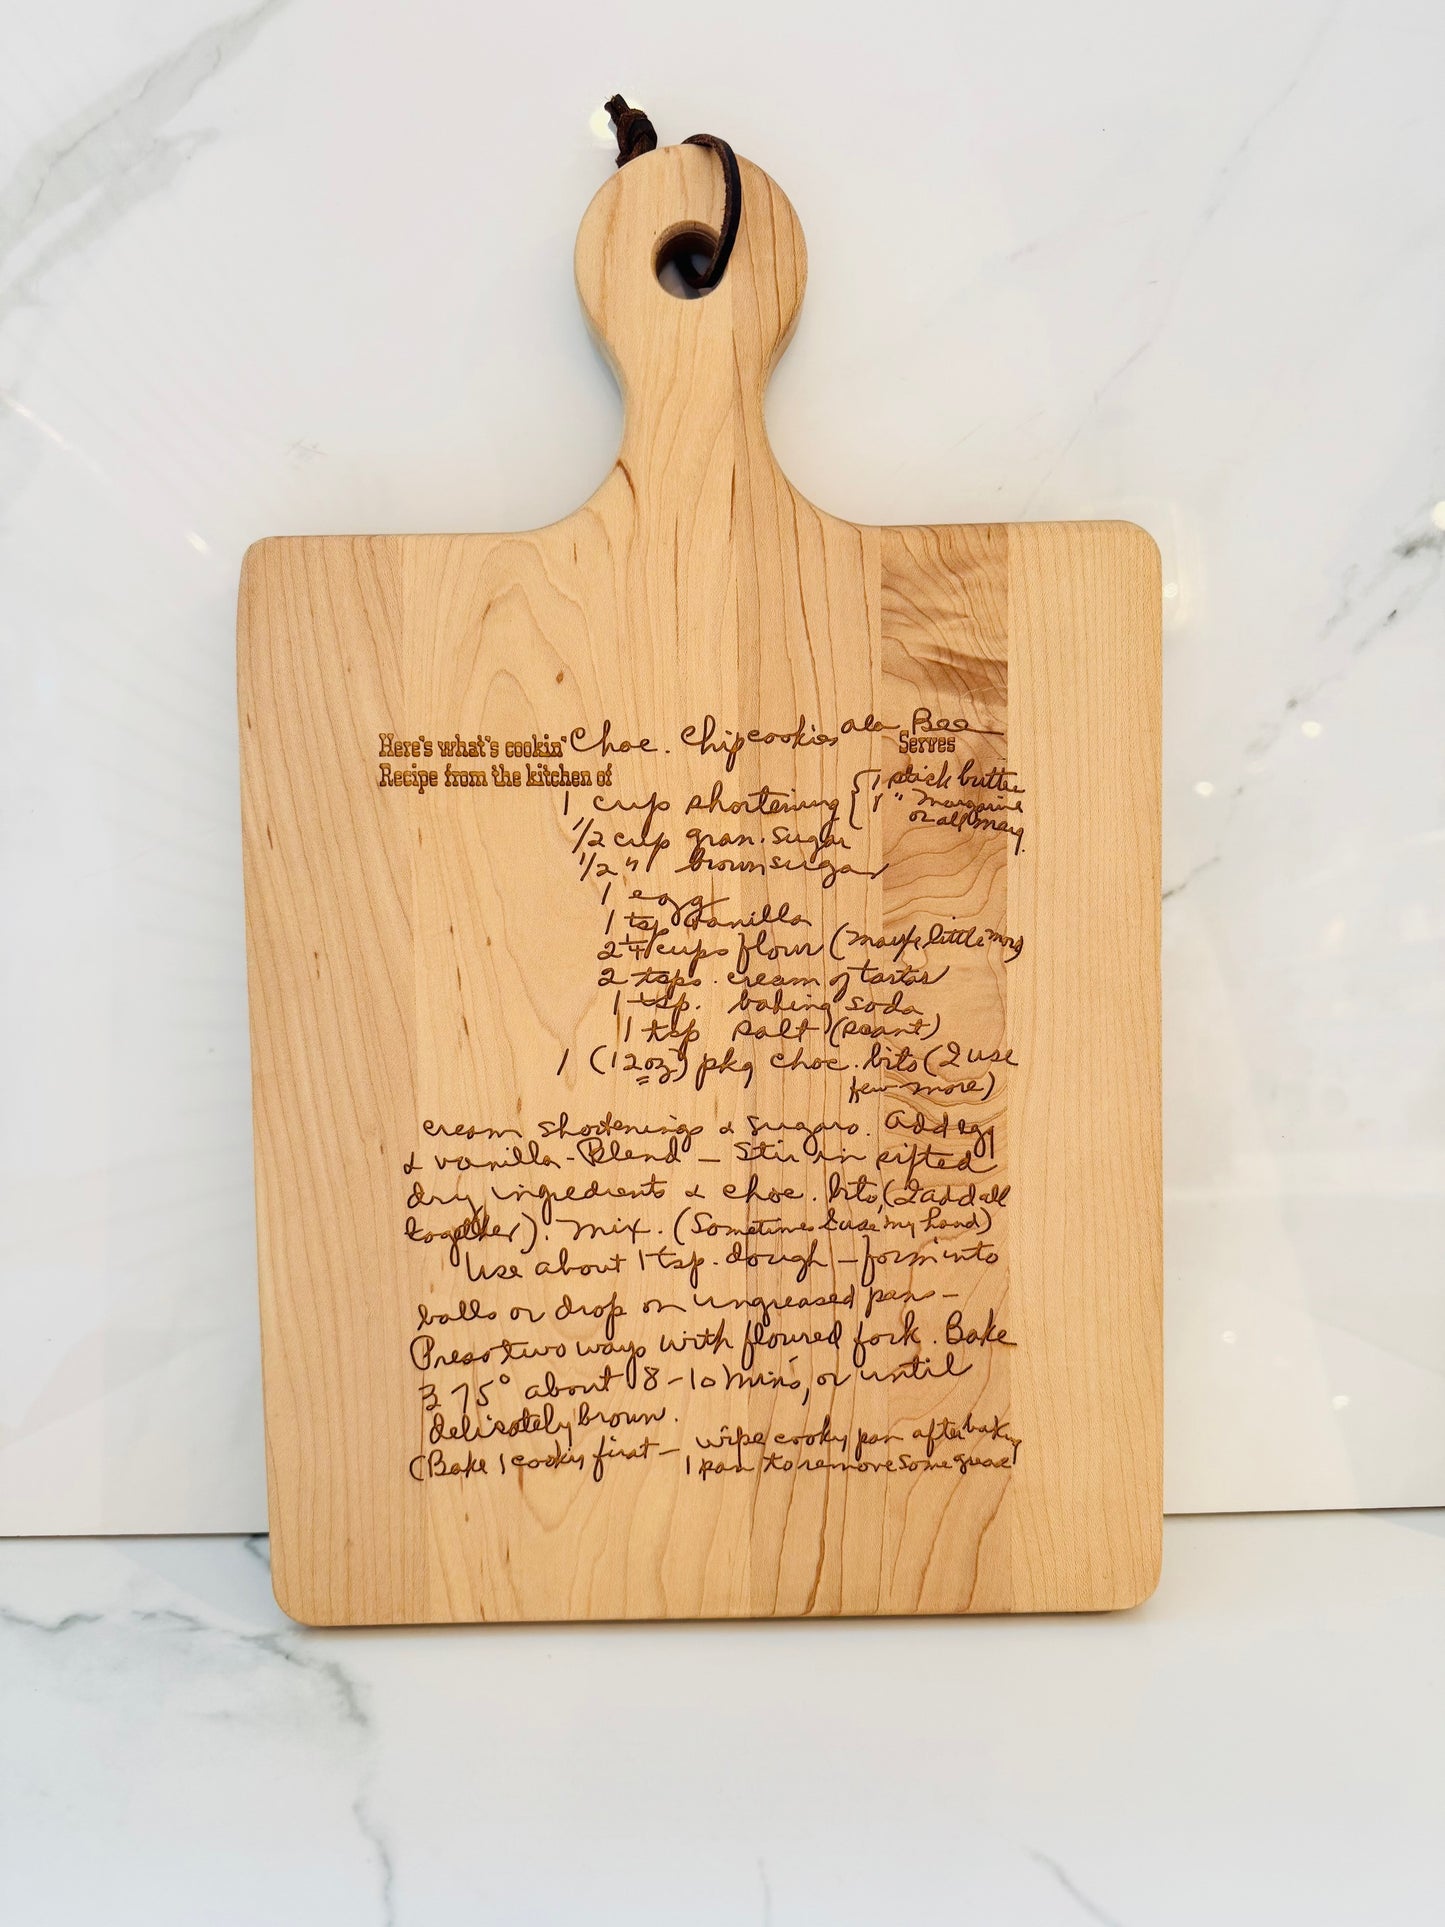 Here's what's cookin' Choc. Chip cookies ala Bee
Serves
Recipe from the kitchen of
1 cup shortening { 1 stick butter
1 " Margarine
or all marg.
1/2 cup gran. sugar
1/2 " brown sugar
1 egg
1 tsp vanilla
2 1/4 cups flour (maybe little more)
2 tsps. cream of tartar
1 tsp. baking soda
1 tsp salt (scant)
1 (12 oz) pkg choc. bits (I use
few more)
cream shortenings & sugars. Add egg
& vanilla - Blend - Stir in sifted
dry ingredients & choc. bits, (I add all
together). Mix. (Sometimes I use my hand)
Use about 1 tsp. dough - form into
balls or drop on ungreased pans -
Press two ways with floured fork. Bake
375° about 8-10 mins, or until
delisately brown.
(Bake 1 cooky first - wipe cooky pan after baking
1 pan to remove some grease